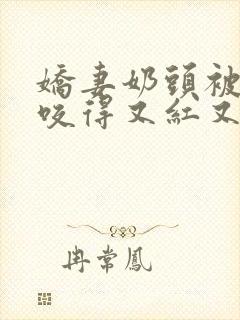 嬌妻奶頭被
咬得又紅又
冉常鳳